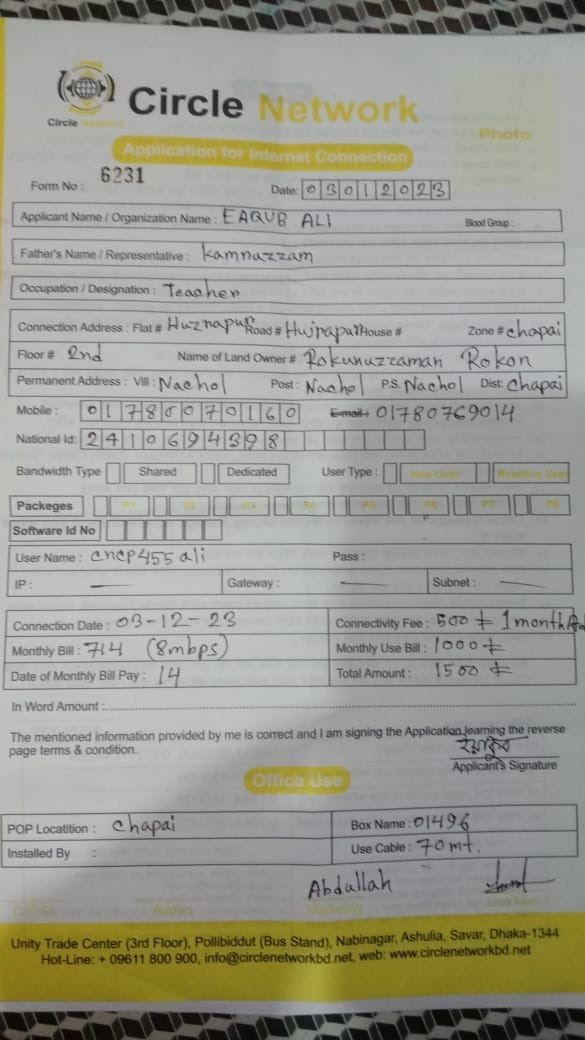 Circle Network
Circle Network
Photo
Application for Internet Connection
Form No : 6231 Date: 03012023
Applicant Name / Organization Name : EAQUB ALI Blood Group :
Father's Name / Representative : Kamruzzam
Occupation / Designation : Teacher
Connection Address : Flat # Huzrapur Road # Hujrapar House # Zone # chapai
Floor # 2nd Name of Land Owner # Rokunuzzaman Rokon
Permanent Address : Vill : Nachol Post : Nachol P.S. Nachol Dist: Chapai
Mobile : 01780070160 E-mail : 01780769014
National Id: 2410694398
Bandwidth Type Shared Dedicated User Type : New User Reactive User
Packeges P1 P2 P3 P4 P5 P6 P7 P8
Software Id No
User Name : cncp455ali Pass :
IP : — Gateway : — Subnet : —
Connection Date : 03-12-23 Connectivity Fee : 500 ৳ 1 month
Monthly Bill : 714 (8mbps) Monthly Use Bill : 1000 ৳
Date of Monthly Bill Pay : 14 Total Amount : 1500 ৳
In Word Amount :
The mentioned information provided by me is correct and I am signing the Application learning the reverse
page terms & condition.
ইয়াকুব
Applicant's Signature
Office Use
POP Locatition : Chapai Box Name : 01496
Installed By : Use Cable : 70 mt.
Abdullah
Admin Marketing
Unity Trade Center (3rd Floor), Pollibiddut (Bus Stand), Nabinagar, Ashulia, Savar, Dhaka-1344
Hot-Line: + 09611 800 900, info@circlenetworkbd.net, web: www.circlenetworkbd.net